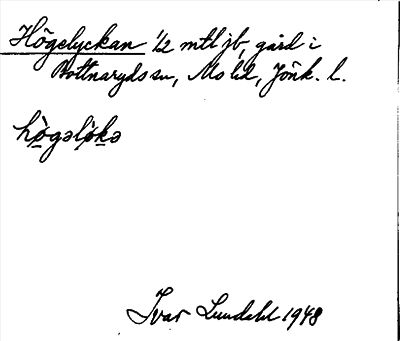 Högelyckan 1/2 mtl jb, gård i
Bottnaryds sn, Mo hd, Jönk. l.
hö̀gəlö̀kə
Ivar Lundahl 1948